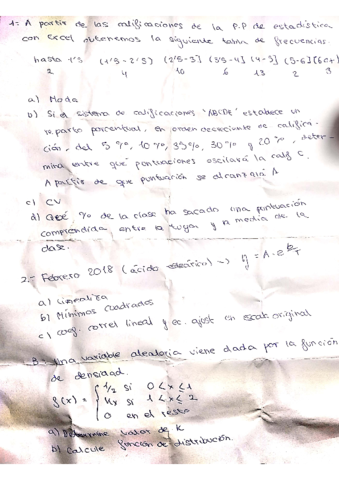 1= A partir de las calificaciones de la P.P de estadística
con Excel obtenemos la siguiente tabla de frecuencias.
hasta 1'5 (1'5-2'5) (2'5-3] (3'5-4] (4-5] (5-6] (6+)
2 4 10 6 13 2 3
a) Moda
b) Si el sistema de calificaciones "ABCDE" establece un
reparto porcentual, en orden decreciente de califica-
ción, del 5%, 10%, 35%, 30% y 20%, deter-
mina entre que puntuaciones oscilará la calif C.
A partir de que puntuación se alcanza A
c) CV
d) Qué % de la clase ha sacado una puntuación
comprendida entre la tuya y la media de la
clase.
2.- Febrero 2018 (ácido esteárico) → η = A · e B/T
a) Linealiza
b) Mínimos cuadrados
c) coef. correl lineal y ec. ajust en escala original
3.- Una variable aleatoria viene dada por la función
de densidad.
f(x) = { 1/2 si 0<x≤1
kx si 1<x≤2
0 en el resto
a) Determine valor de k
b) Calcule función de distribución.